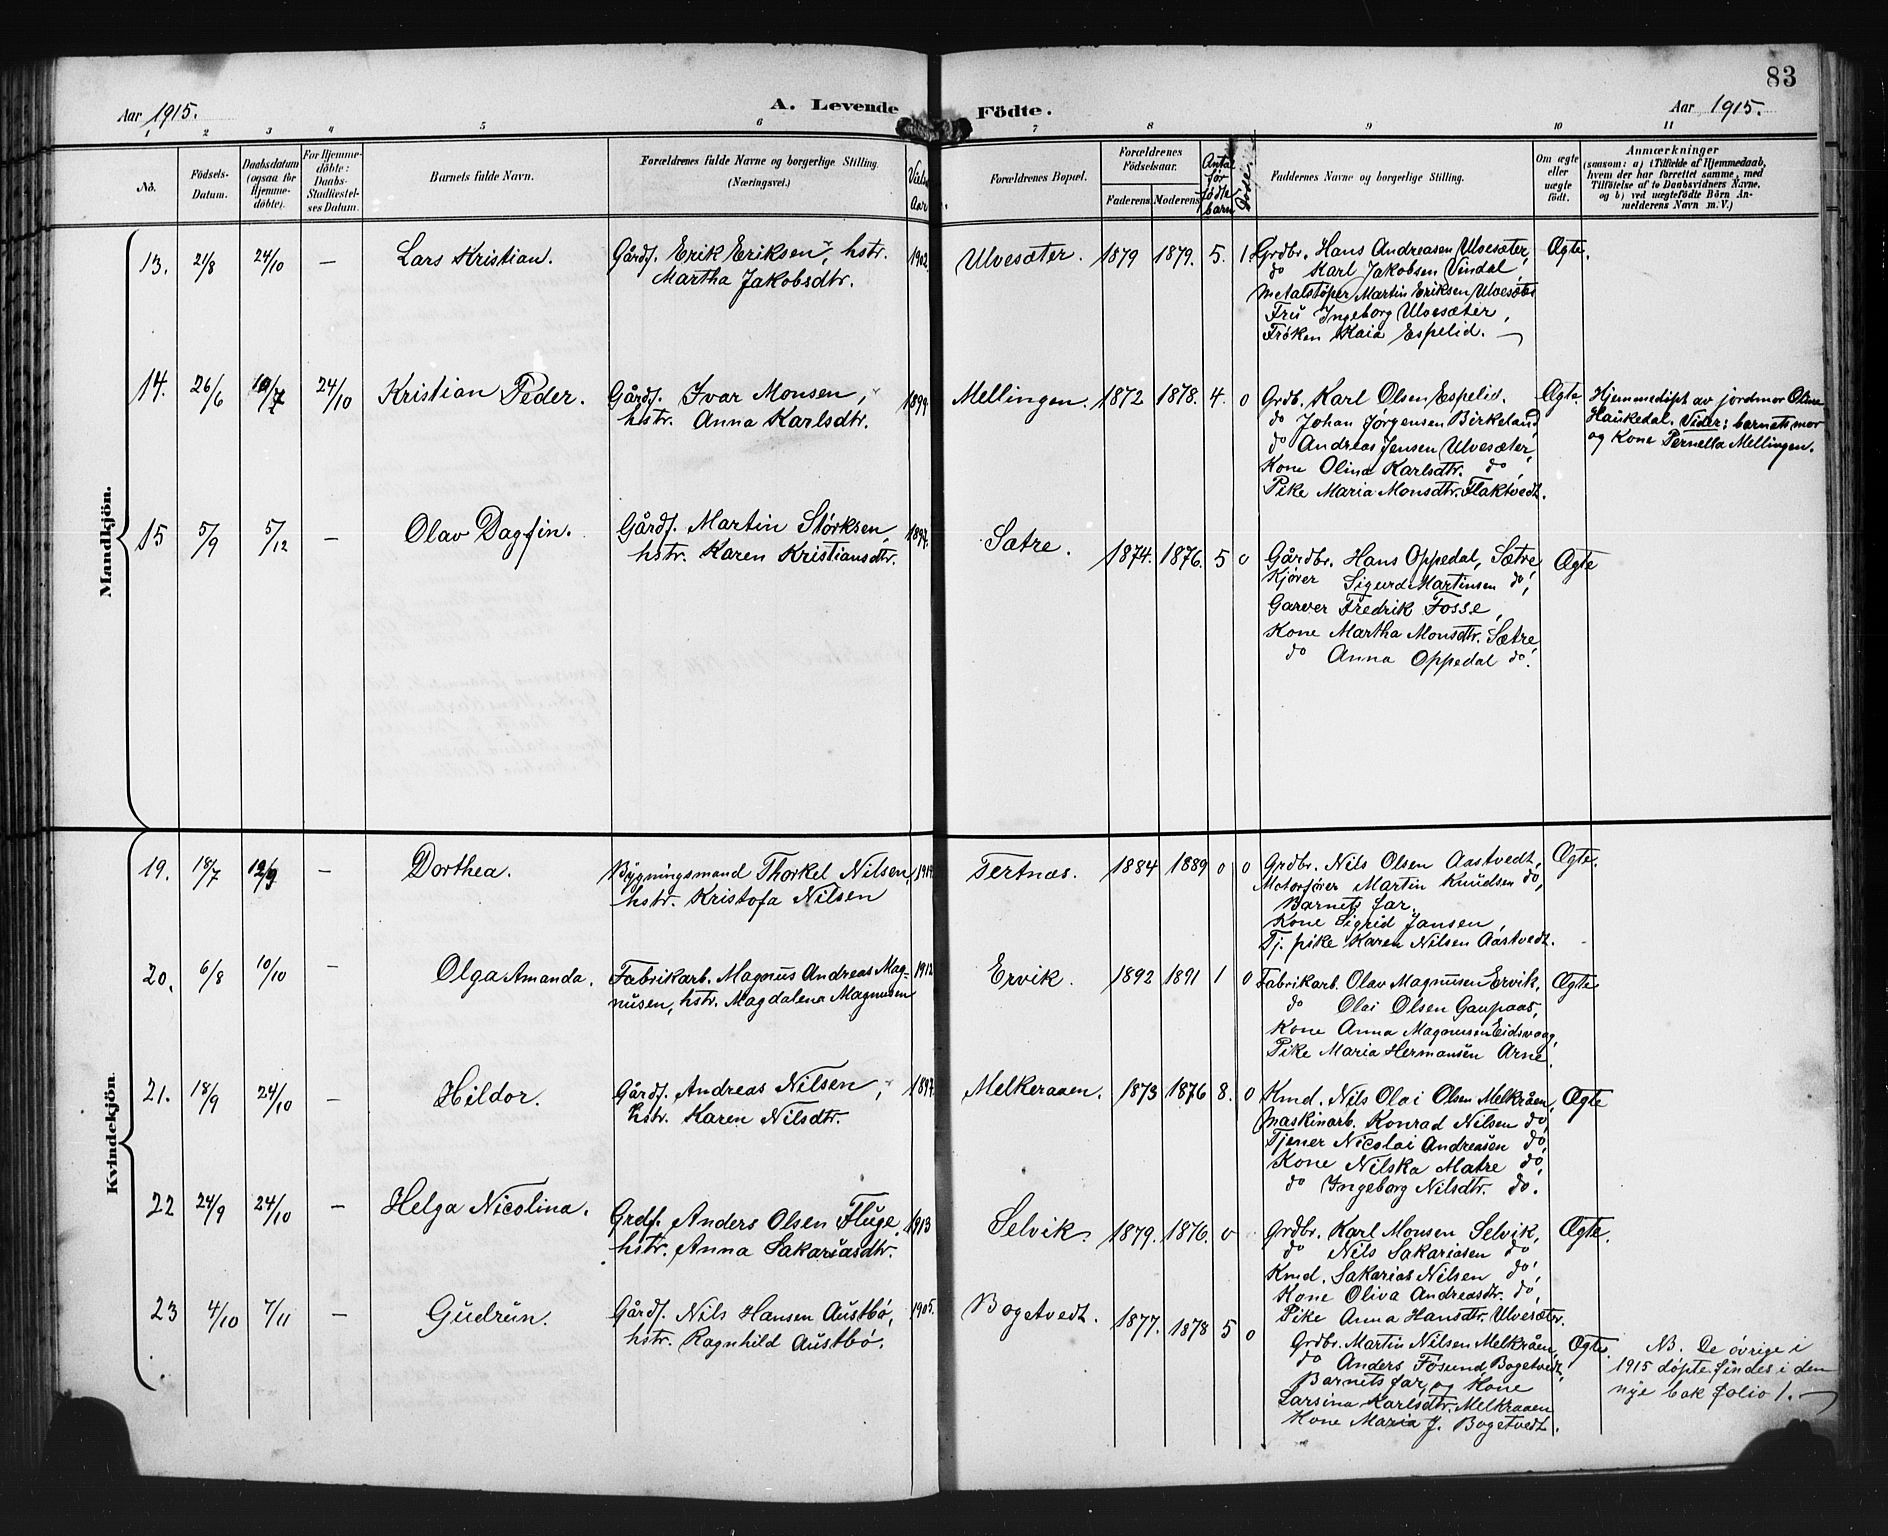 83
Aar 1915.
A. Levende Födte.
Aar 1915.
1 2 3 4 5 6 7 8 9 10 11
No.
Födsels-Datum.
Daabsdatum (ogsaa for Hjemme-döbte).
For Hjemme-döbte: Daabs-Stadfæstel-ses Datum.
Barnets fulde Navn.
Forældrenes fulde Navne og borgerlige Stilling. (Næringsvei.)
Forældrenes Bopæl.
Forældrenes Födselsaar.
Faderens. Moderens.
Antal før fødte barn
Døde.
Faddernes Navne og borgerlige Stilling.
Om ægte eller uægte födt.
Anmærkninger
(saasom: a) i Tilfælde af Hjemmedaab,
hvem der har forrettet samme, med
Tilföielse af to Daabsvidners Navne,
og b) ved uægtefödte Börn An-
melderens Navn m. V.)
Mandkjön.
13. 21/8 24/10 — Lars Kristian. Gårdf. Erik Eriksen, hstr. 1902. Ulvesæter. 1879 1879. 5. 1 Grdbr. Hans Andreasen Ulvesæter, Ægte.
Martha Jakobsdtr. do Karl Jakobsen Vindal,
Metalstøper Martin Eriksen Ulvesæter
Fru Ingeborg Ulvesæter,
Frøken Kaia Espelid. —
14. 26/6 24/10 Kristian Peder. Gårdf. Ivar Monsen, 1899. Mellingen. 1872 1878. 4. 0 Grdb. Karl Olsen Espelid. Ægte. Hjemmedøpt av jordmor Olina
hstr. Anna Karlsdtr. do Johan Jørgensen Birkeland, Haukedal. Vidner: barnets mor
do Andreas Jensen Ulvesæter, og Kone Pernella Mellingen.
Kone Olina Karlsdtr. do,
Pike Maria Monsdtr. Flaktvedt.
15 5/9 5/12 — Olav Dagfin. Gårdf. Martin Størksen, 1897. Sætre. 1874. 1876. 5 0 Gårdbr. Hans Oppedal, Sætre, Ægte
hstr. Karen Kristiansdtr. Kjører Sigurd Martinsen do,
Garver Fredrik Fosse,
Kone Martha Monsdtr. Sætre
do Anna Oppedal do.
Kvindekjön.
19. 18/7 12/9 — Dorthea. Bygningsmand Thorkel Nilsen, Tertnæs. 1884 1889 0 0 Grdbr. Nils Olsen Aastvedt, Ægte.
hstr. Kristofa Nilsen Motorfører Martin Knudsen do,
Barnets far,
Kone Sigrid Jansen,
Tj. pike Karen Nilsen Aastvedt.
20. 6/8 10/10 — Olga Amanda. Fabrikarb. Magnus Andreas Mag- 1912 Ervik. 1892 1891 1 0 Fabrikarb. Olav Magnusen Ervik, Ægte
nusen, hstr. Magdalena Magnusen do Olai Olsen Gaupaas,
Kone Anna Magnusen Eidsvaag,
Pike Maria Hermansen Arne.
21. 18/9 24/10 — Hildor. Gårdf. Andreas Nilsen, 1897. Melkeraaen. 1873 1876 8. 0 Kmd. Nils Olai Olsen Melkråen, Ægte
hstr. Karen Nilsdtr. Maskinarb. Konrad Nilsen do,
Tjener Nicolai Andreasen do,
Kone Nilska Matre do,
do Ingeborg Nilsdtr. do.
22 24/9 24/10 — Helga Nicolina. Grdf. Anders Olsen Fluge, 1913 Selvik. 1879. 1876. 0 Grdbr. Karl Monsen Selvik, Ægte.
hstr. Anna Sakariasdtr. do Nils Sakariasen do
Kmd. Sakarias Nilsen do,
Kone Oliva Andreasdtr. do,
Pike Anna Hansdtr. Ulvesæter.
23 4/10 7/11 — Gudrun. Gårdf. Nils Hansen Austbø, 1905. Bogetvedt. 1877. 1878 5 0 Grdbr. Martin Nilsen Melkråen, Ægte. NB. De øvrige i
hstr. Ragnhild Austbø. do Anders Fosund Bogetvedt, 1915 døpte findes i den
Barnets far, og Kone nye bok folio 1. —
Larsina Karlsdtr. Melkraaen
Kone Maria J. Bogetvedt.